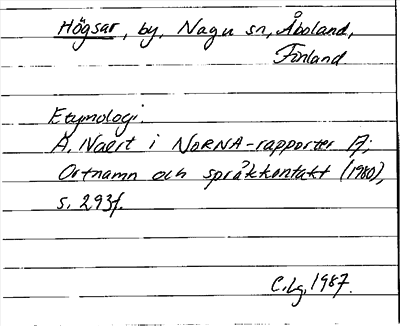 Högsar, by, Nagu sn, Åboland,
Finland
Etymologi.
A. Naert i NORNA-rapporter 17;
Ortnamn och språkkontakt (1980),
s. 293f.
C.Lg. 1987.